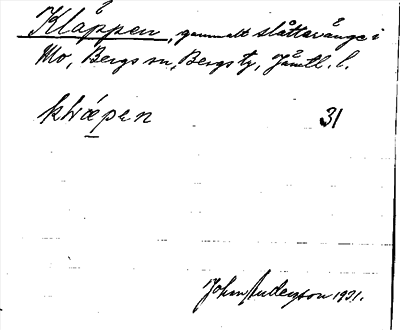 Kläppen, gammalt slåttavånge i
Mo, Bergs sn, Bergs tg, Jämtl. l.
klæ̀pen 31
John Anderson 1931.